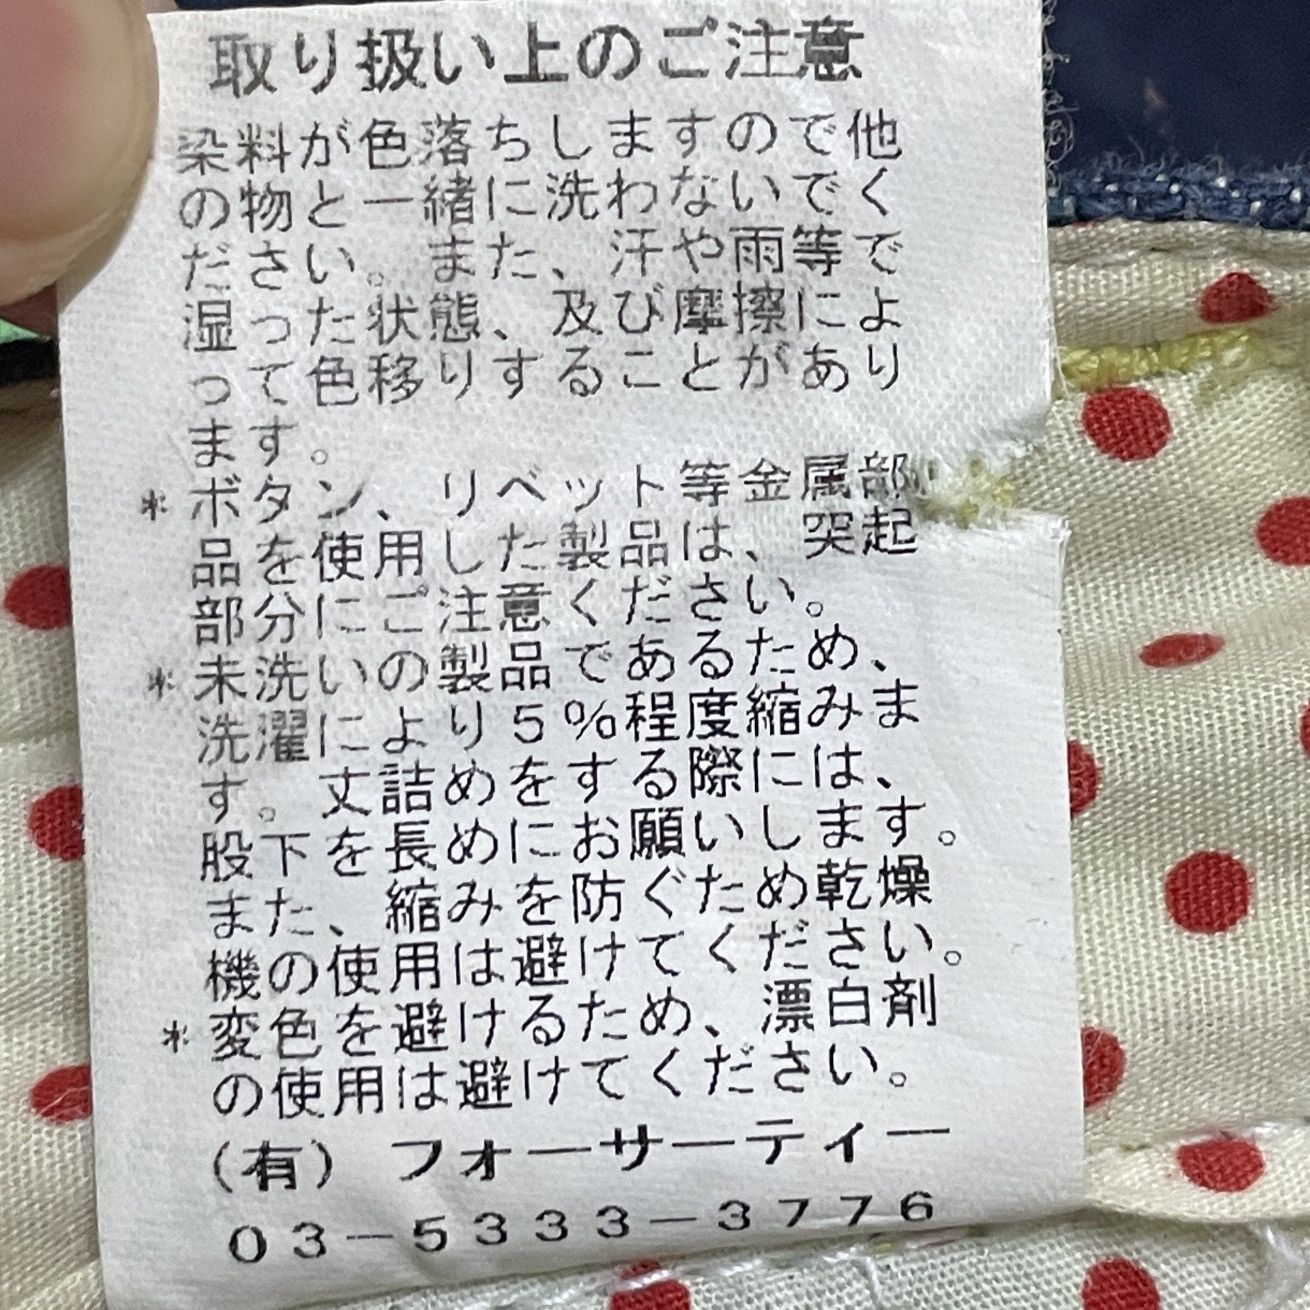 取り扱い上のご注意
染料が色落ちしますので他
の物と一緒に洗わないでく
ださい。また、汗や雨等で
湿った状態、及び摩擦によ
って色移りすることがあり
ます。
*ボタン、リベット等金属部
品を使用した製品は、突起
部分にご注意ください。
*未洗いの製品であるため、
洗濯により5%程度縮みま
す。丈詰めをする際には、
股下を長めにお願いします。
また、縮みを防ぐため乾燥
機の使用は避けてください。
*変色を避けるため、漂白剤
の使用は避けてください。
(有)フォーサーティー
03-5333-3776